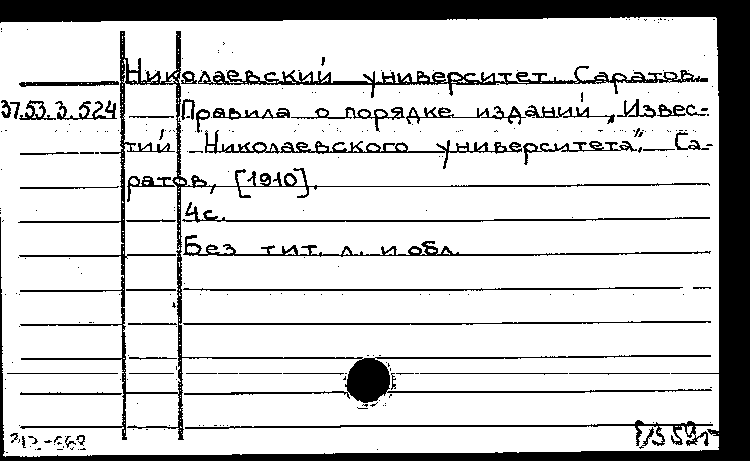 Николаевский университет. Саратов.
37.53.3.524 Правила о порядке изданий „Извес-
тий Николаевского университета“. Са-
ратов, [1910].
4с.
Без тит. л. и обл.